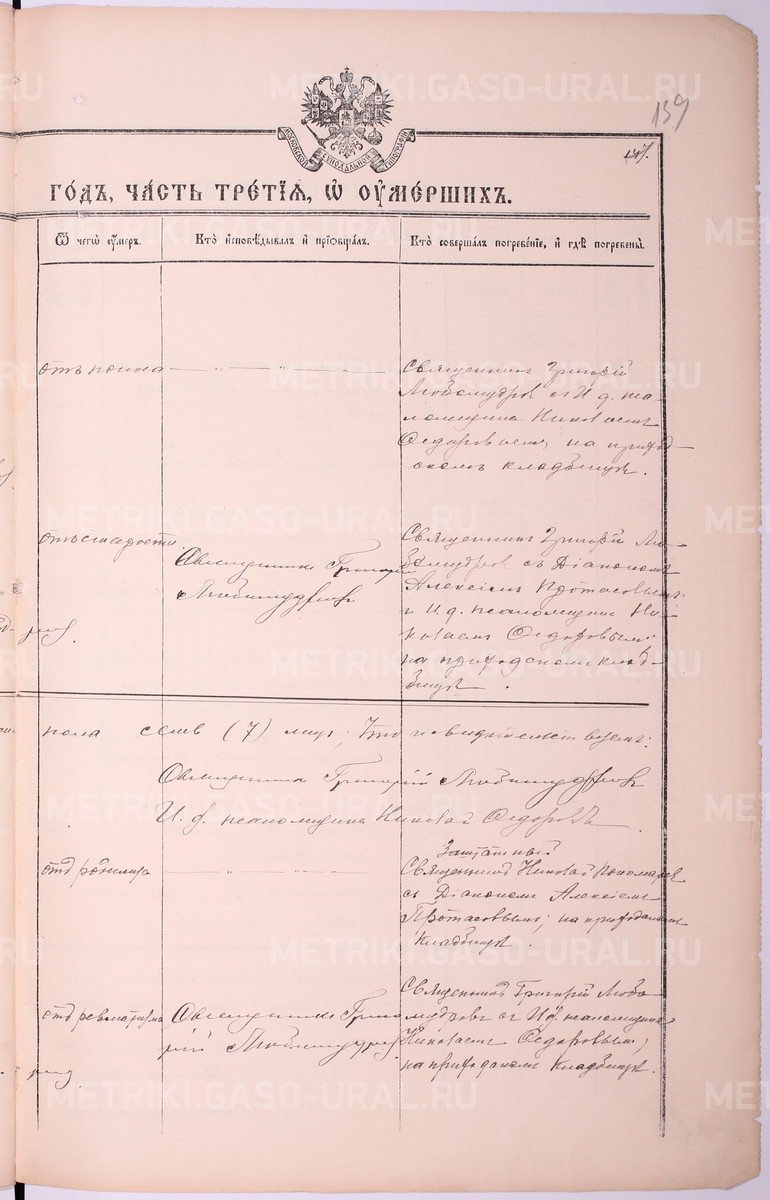 METRIKI.GASO-URAL.RU
159
147.
МОСКОВСКОЙ СѴНОДАЛЬНОЙ ТИПОГРАФІИ
ГО́ДЪ, ЧА́СТЬ ТРЕ́ТІѦ, Ѡ҆ ОУ҆МЕ́РШИХЪ.
Ѿ чегѡ̀ оу҆́меръ.
Кто̀ и҆сповѣ́дывалъ и҆ прїѡбща́лъ.
Кто̀ соверша́лъ погребе́нїе, и҆ гдѣ̀ погребены̀.
отъ поноса
Священникъ Григорій
Любомудровъ съ И. д. пса
ломщика Николаемъ
Федоровымъ, на приход
скомъ кладбищѣ.
отъ старости
Священникъ Григорій
Любомудровъ
Священникъ Григорій Лю
бомудровъ съ Діакономъ
Алексіемъ Протасовымъ
и И. д. псаломщика Ни
колаемъ Федоровымъ;
на приходскомъ клад-
бищѣ.
пола семь (7) лицъ; Что и свидѣтельствуемъ:
Священникъ Григорій Любомудровъ
И. д. псаломщика Николай Федоровъ
отъ родимца
Заштатный
Священникъ Николай Пономаревъ
съ Діакономъ Алексіемъ
Протасовымъ; на приходскомъ
Кладбищѣ.
отъ ревматизма
Священникъ Григо
рій Любомудровъ
Священникъ Григорій Любо
мудровъ съ И. д. псаломщика
Николаемъ Федоровымъ,
на приходскомъ Кладбищѣ.